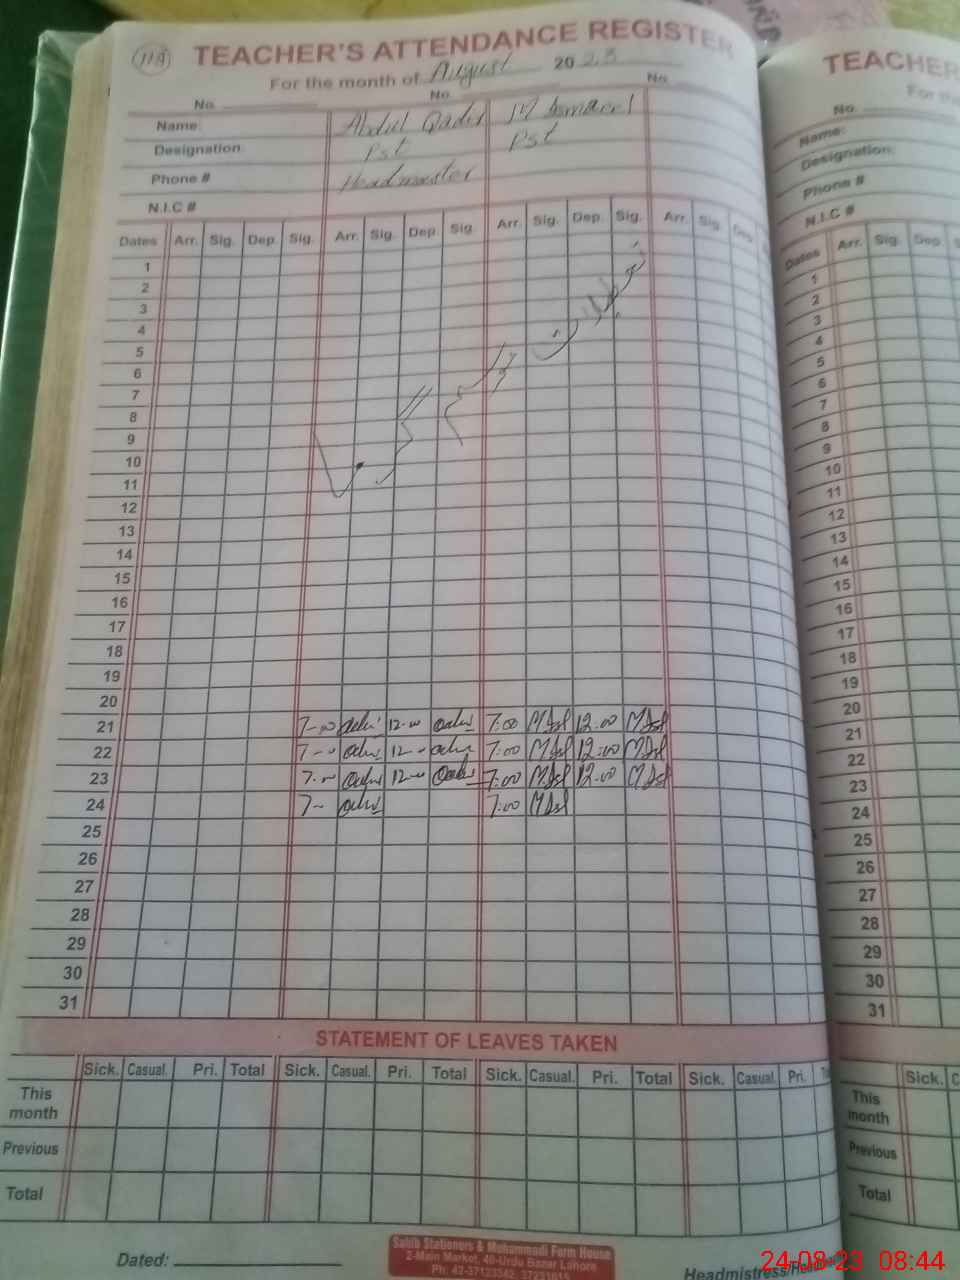 118
TEACHER'S ATTENDANCE REGISTER
For the month of August 2023
No. No. No.
Name: Abdul Qadir M Ismaeel
Designation: Pst Pst
Phone # Headmaster
N.I.C #
Dates Arr. Sig. Dep. Sig. Arr. Sig. Dep. Sig. Arr. Sig. Dep. Sig. Arr. Sig. Dep
1
2
3
4
5
6
7
8
9
10
11
12
13
14
15
16
17
18
19
20
21 7-00 12-00 7:00 12:00
22 7-00 12-00 7:00 12:00
23 7-00 12-00 7:00 12:00
24 7- 7:00
25
26
27
28
29
30
31
STATEMENT OF LEAVES TAKEN
Sick. Casual. Pri. Total Sick. Casual. Pri. Total Sick. Casual. Pri. Total Sick. Casual. Pri.
This month
Previous
Total
Dated:
Sahib Stationers & Muhammadi Form House
2-Main Market, 40-Urdu Bazar Lahore
Headmistress/
TEACHER
No.
Name:
Designation:
Phone #
N.I.C #
Dates Arr. Sig. Dep.
1
2
3
4
5
6
7
8
9
10
11
12
13
14
15
16
17
18
19
20
21
22
23
24
25
26
27
28
29
30
31
Sick.
This month
Previous
Total
24-08-23 08:44